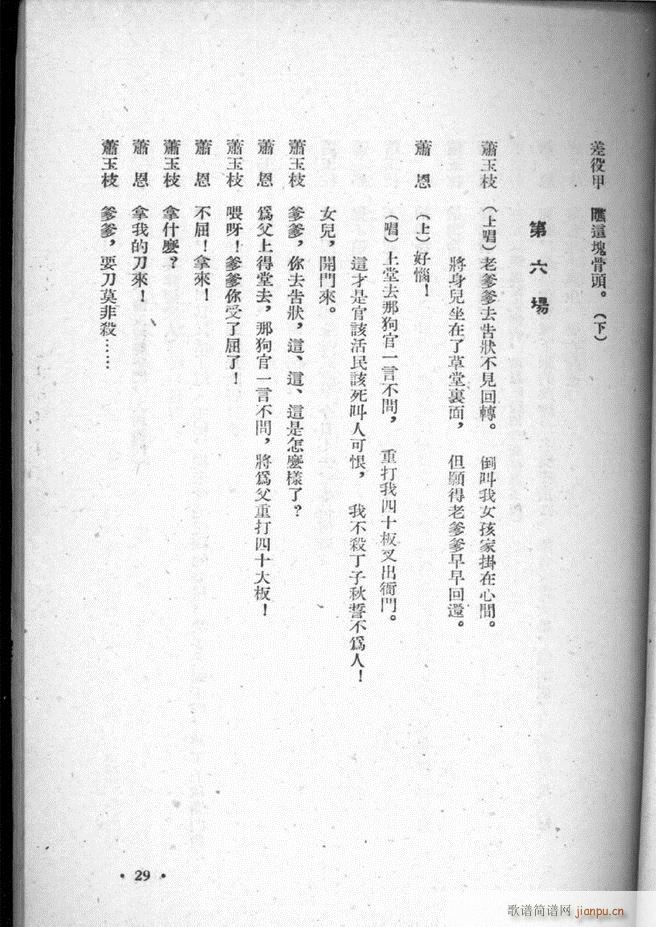 差役甲　瞧這塊骨頭。（下）
第六場
蕭玉枝　（上唱）老爹爹去告狀不見回轉。　倒叫我女孩家掛在心間。
將身兒坐在了草堂裏面，　但願得老爹爹早早回還。
蕭　恩　（上）好惱！
（唱）上堂去那狗官一言不問，　重打我四十板叉出衙門。
這才是官該活民該死叫人可恨，　我不殺丁子秋誓不爲人！
女兒，開門來。
蕭玉枝　爹爹，你去告狀，這、這、這是怎麼樣了？
蕭　恩　爲父上得堂去，那狗官一言不問，將爲父重打四十大板！
蕭玉枝　喂呀！爹爹你受了屈了！
蕭　恩　不屈！拿來！
蕭玉枝　拿什麼？
蕭　恩　拿我的刀來！
蕭玉枝　爹爹，要刀莫非殺……
• 29 •
歌谱简谱网 jianpu.cn